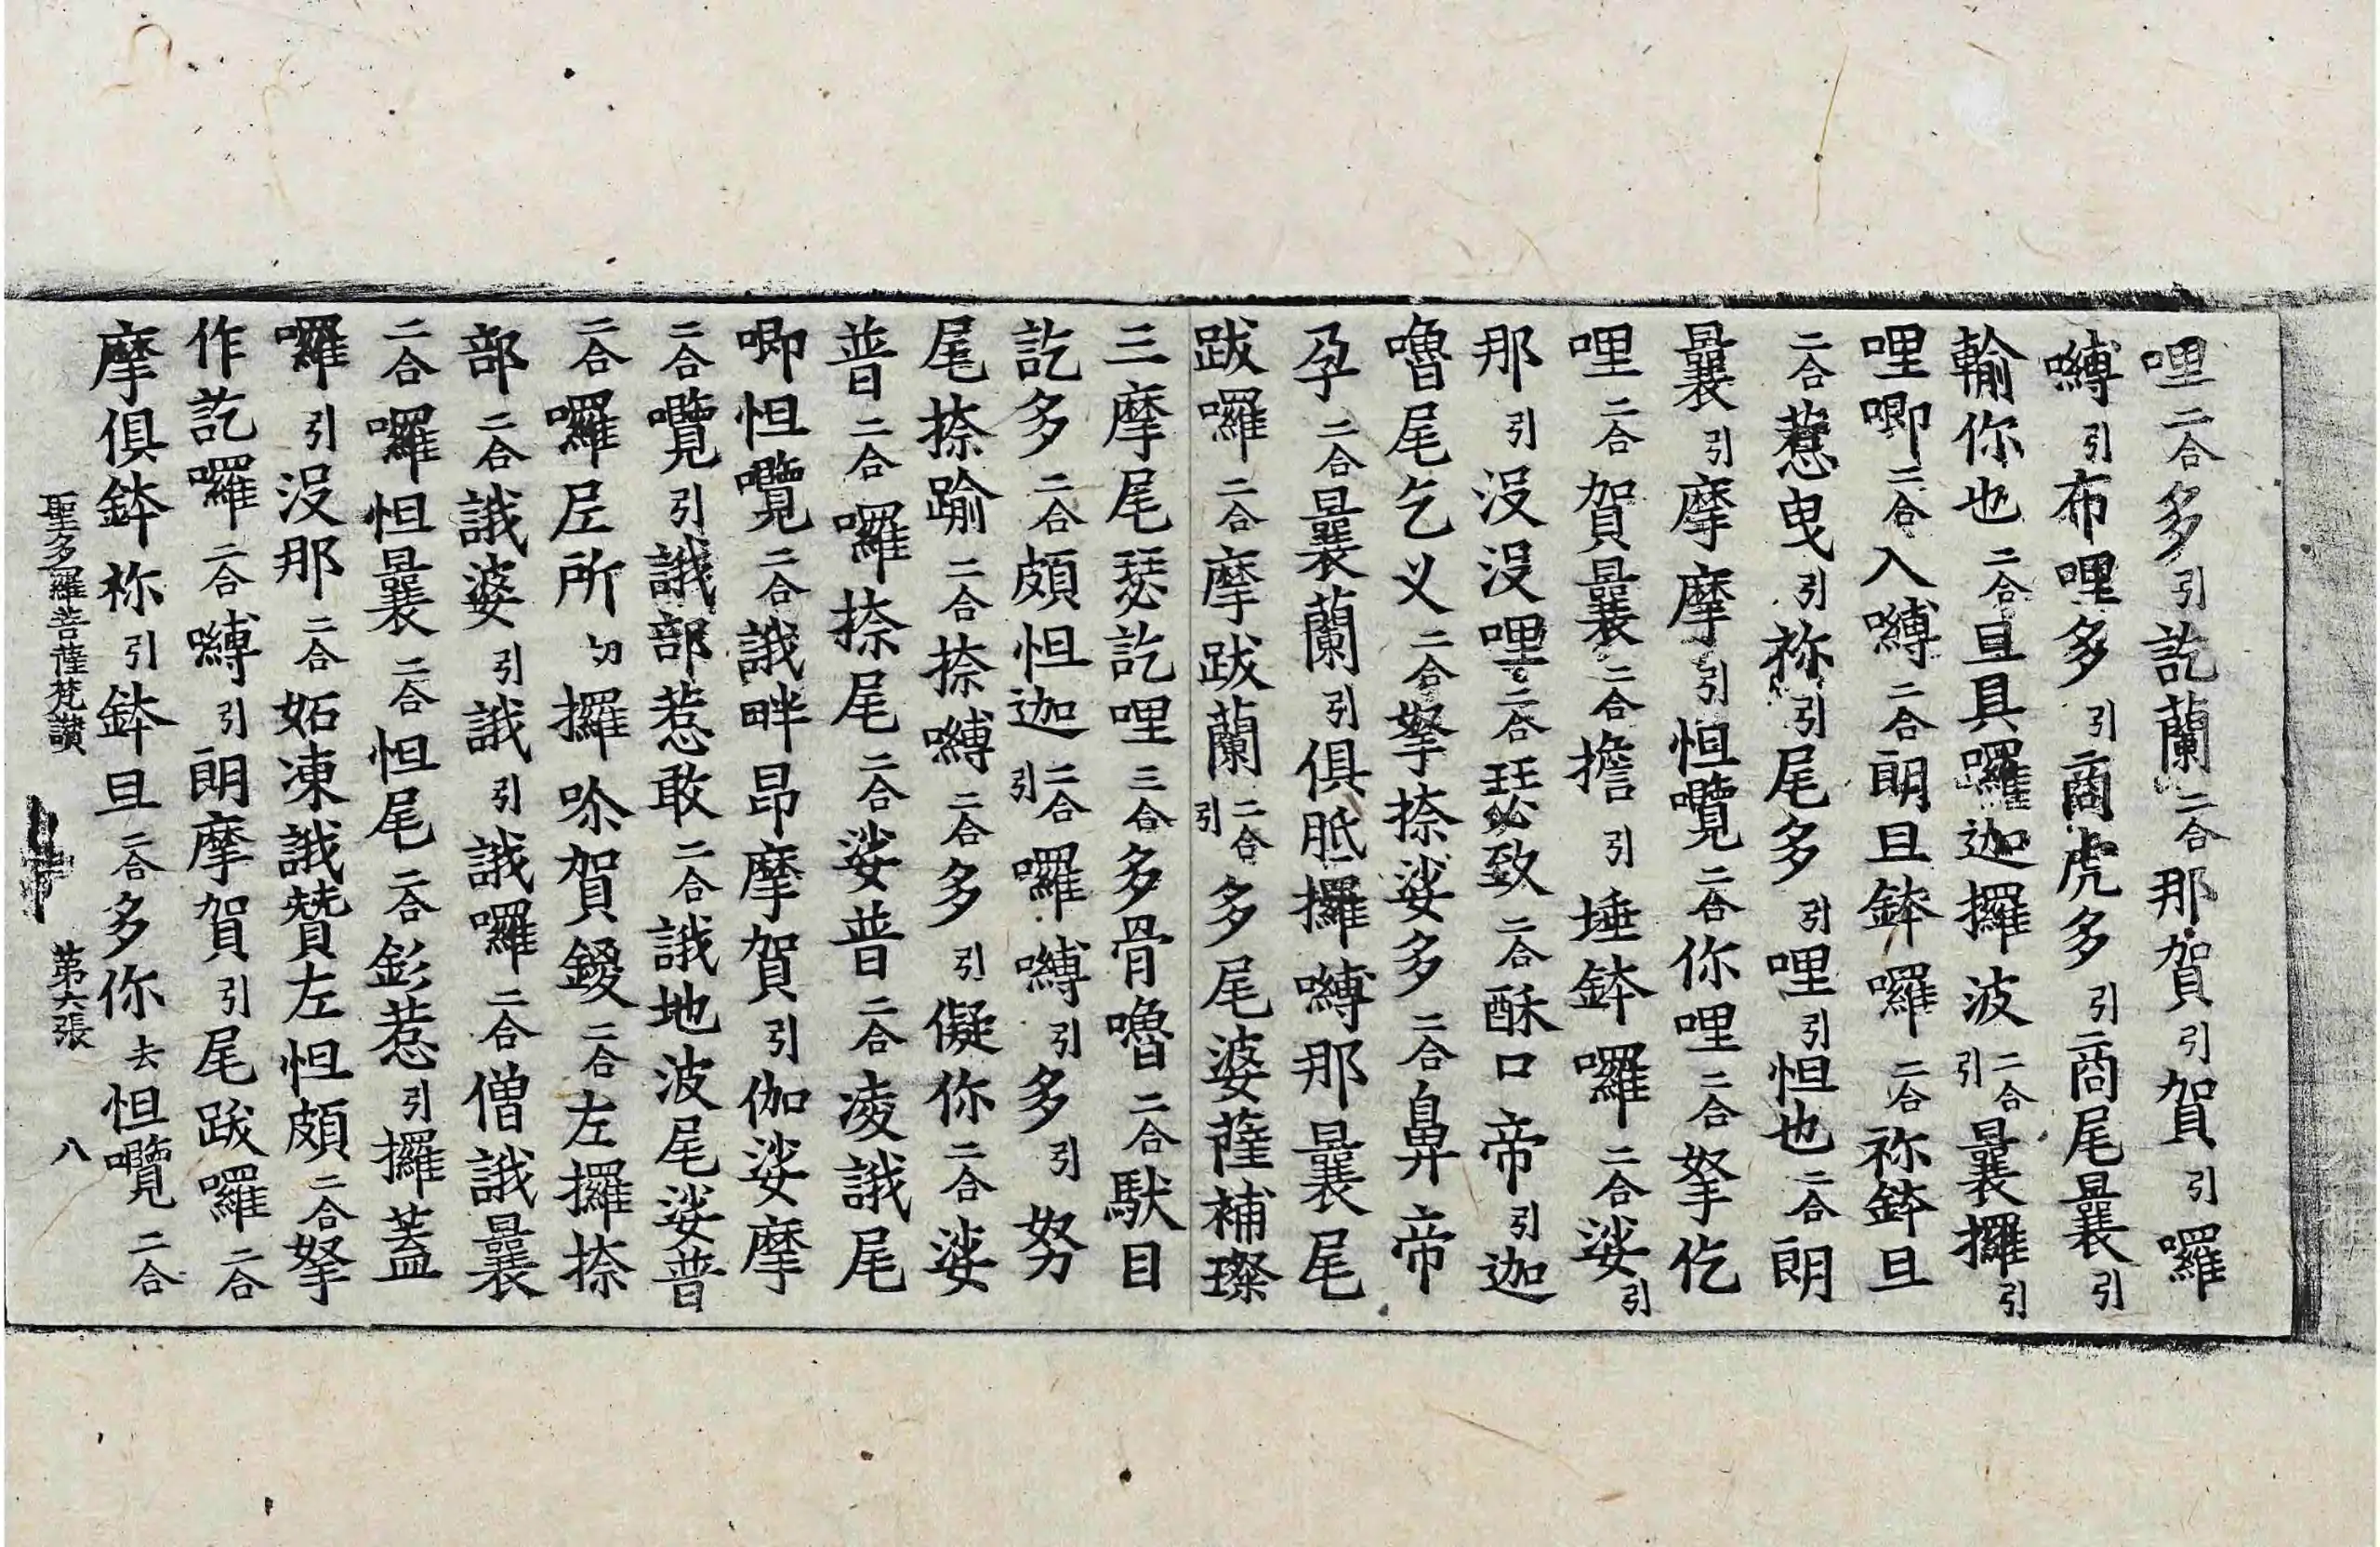 哩二合多引訖蘭二合那賀引賀引囉
嚩引布哩多引商虎多引商尾曩引
輸你也二合且具囉迦攞波二合引曩攞引
哩唧二合入嚩二合朗且鉢囉二合祢鉢且
二合惹曳引祢引尾多引哩引怛也二合朗
曩引摩摩引怛囕二合你哩二合拏仡
哩二合賀曩二合擔引埵鉢囉二合娑引
那引沒沒哩二合瑟致二合酥口帝引迦
嚕尾乞叉二合拏捺娑多二合鼻帝
孕二合曩蘭引俱胝攞嚩那曩尾
跋囉二合摩跋蘭二合引多尾婆薩補璨
三摩尾瑟訖哩三合多骨嚕二合馱目
訖多二合頗怛迦二合引囉嚩引多引努
尾捺踰二合捺嚩二合多引儗你二合娑
普二合囉捺尾二合娑普二合凌誐尾
唧怛囕二合誐畔昂摩賀引伽娑摩
二合囕引誐部惹敢二合誐地波尾娑普
二合囉𡱝所切攞唹賀鑁二合左攞捺
部二合誐婆引誐引誐囉二合僧誐曩
二合囉怛曩二合怛尾二合彭惹引攞蓋
囉引沒那二合妬凍誐贊左怛頗二合拏
作訖囉二合嚩引朗摩賀引尾跋囉二合
摩俱鉢祢引鉢且二合多你去怛囕二合
聖多羅菩薩梵讚 第六張 八